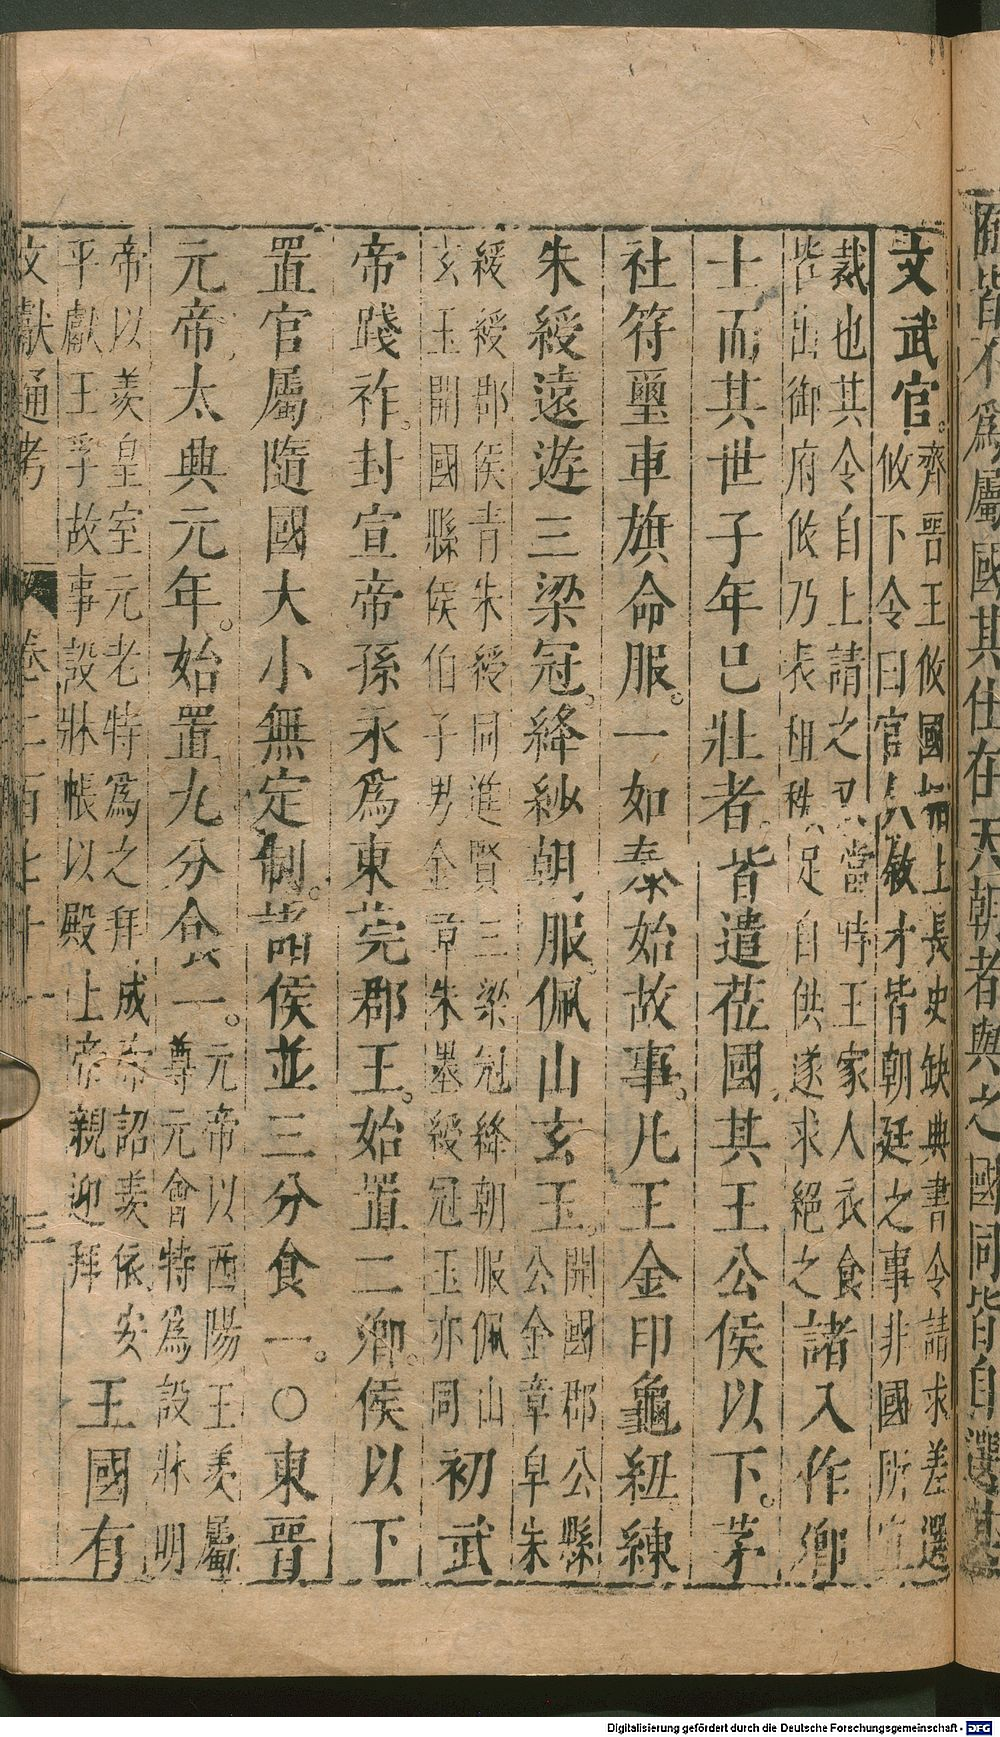 隨皆不為屬國其仕在天朝者與之國同皆自選其
文武官。齊晉王攸國相上長史缺典書令請求差選
攸下令曰官人敘才皆朝廷之事非國所宜
裁也其令自上請之又當時王家人衣食
皆出御府攸乃表租秩足自供遂求絕之諸入作卿
士而其世子年已壯者。皆遣莅國其王公侯以下。茅
社符璽車旗命服。一如泰始故事。凡王金印龜紐練
朱綬遠遊三梁冠。絳紗朝服。佩山玄玉。開國郡公縣
公金章皁朱
綬綬郡侯青朱綬同進賢三梁冠絳朝服佩山
玄玉開國縣侯伯子男金章朱墨綬冠玉亦同初武
帝踐祚。封宣帝孫永為東莞郡王。始置二卿。侯以下
置官屬隨國大小無定制。諸侯並三分食一。○東晉
元帝太興元年。始置九分食一。元帝以酉陽王羕屬
尊元會特為設牀明
帝以羕皇室元老特為之拜成帝詔羕依安
平獻王孚故事設牀帳以殿上帝親迎拜王國有
文獻通考 卷二百七十一 三
Digitalisierung gefördert durch die Deutsche Forschungsgemeinschaft - DFG